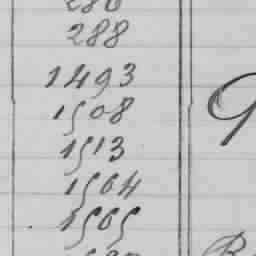 288
1493
1508
1513
1564
1565